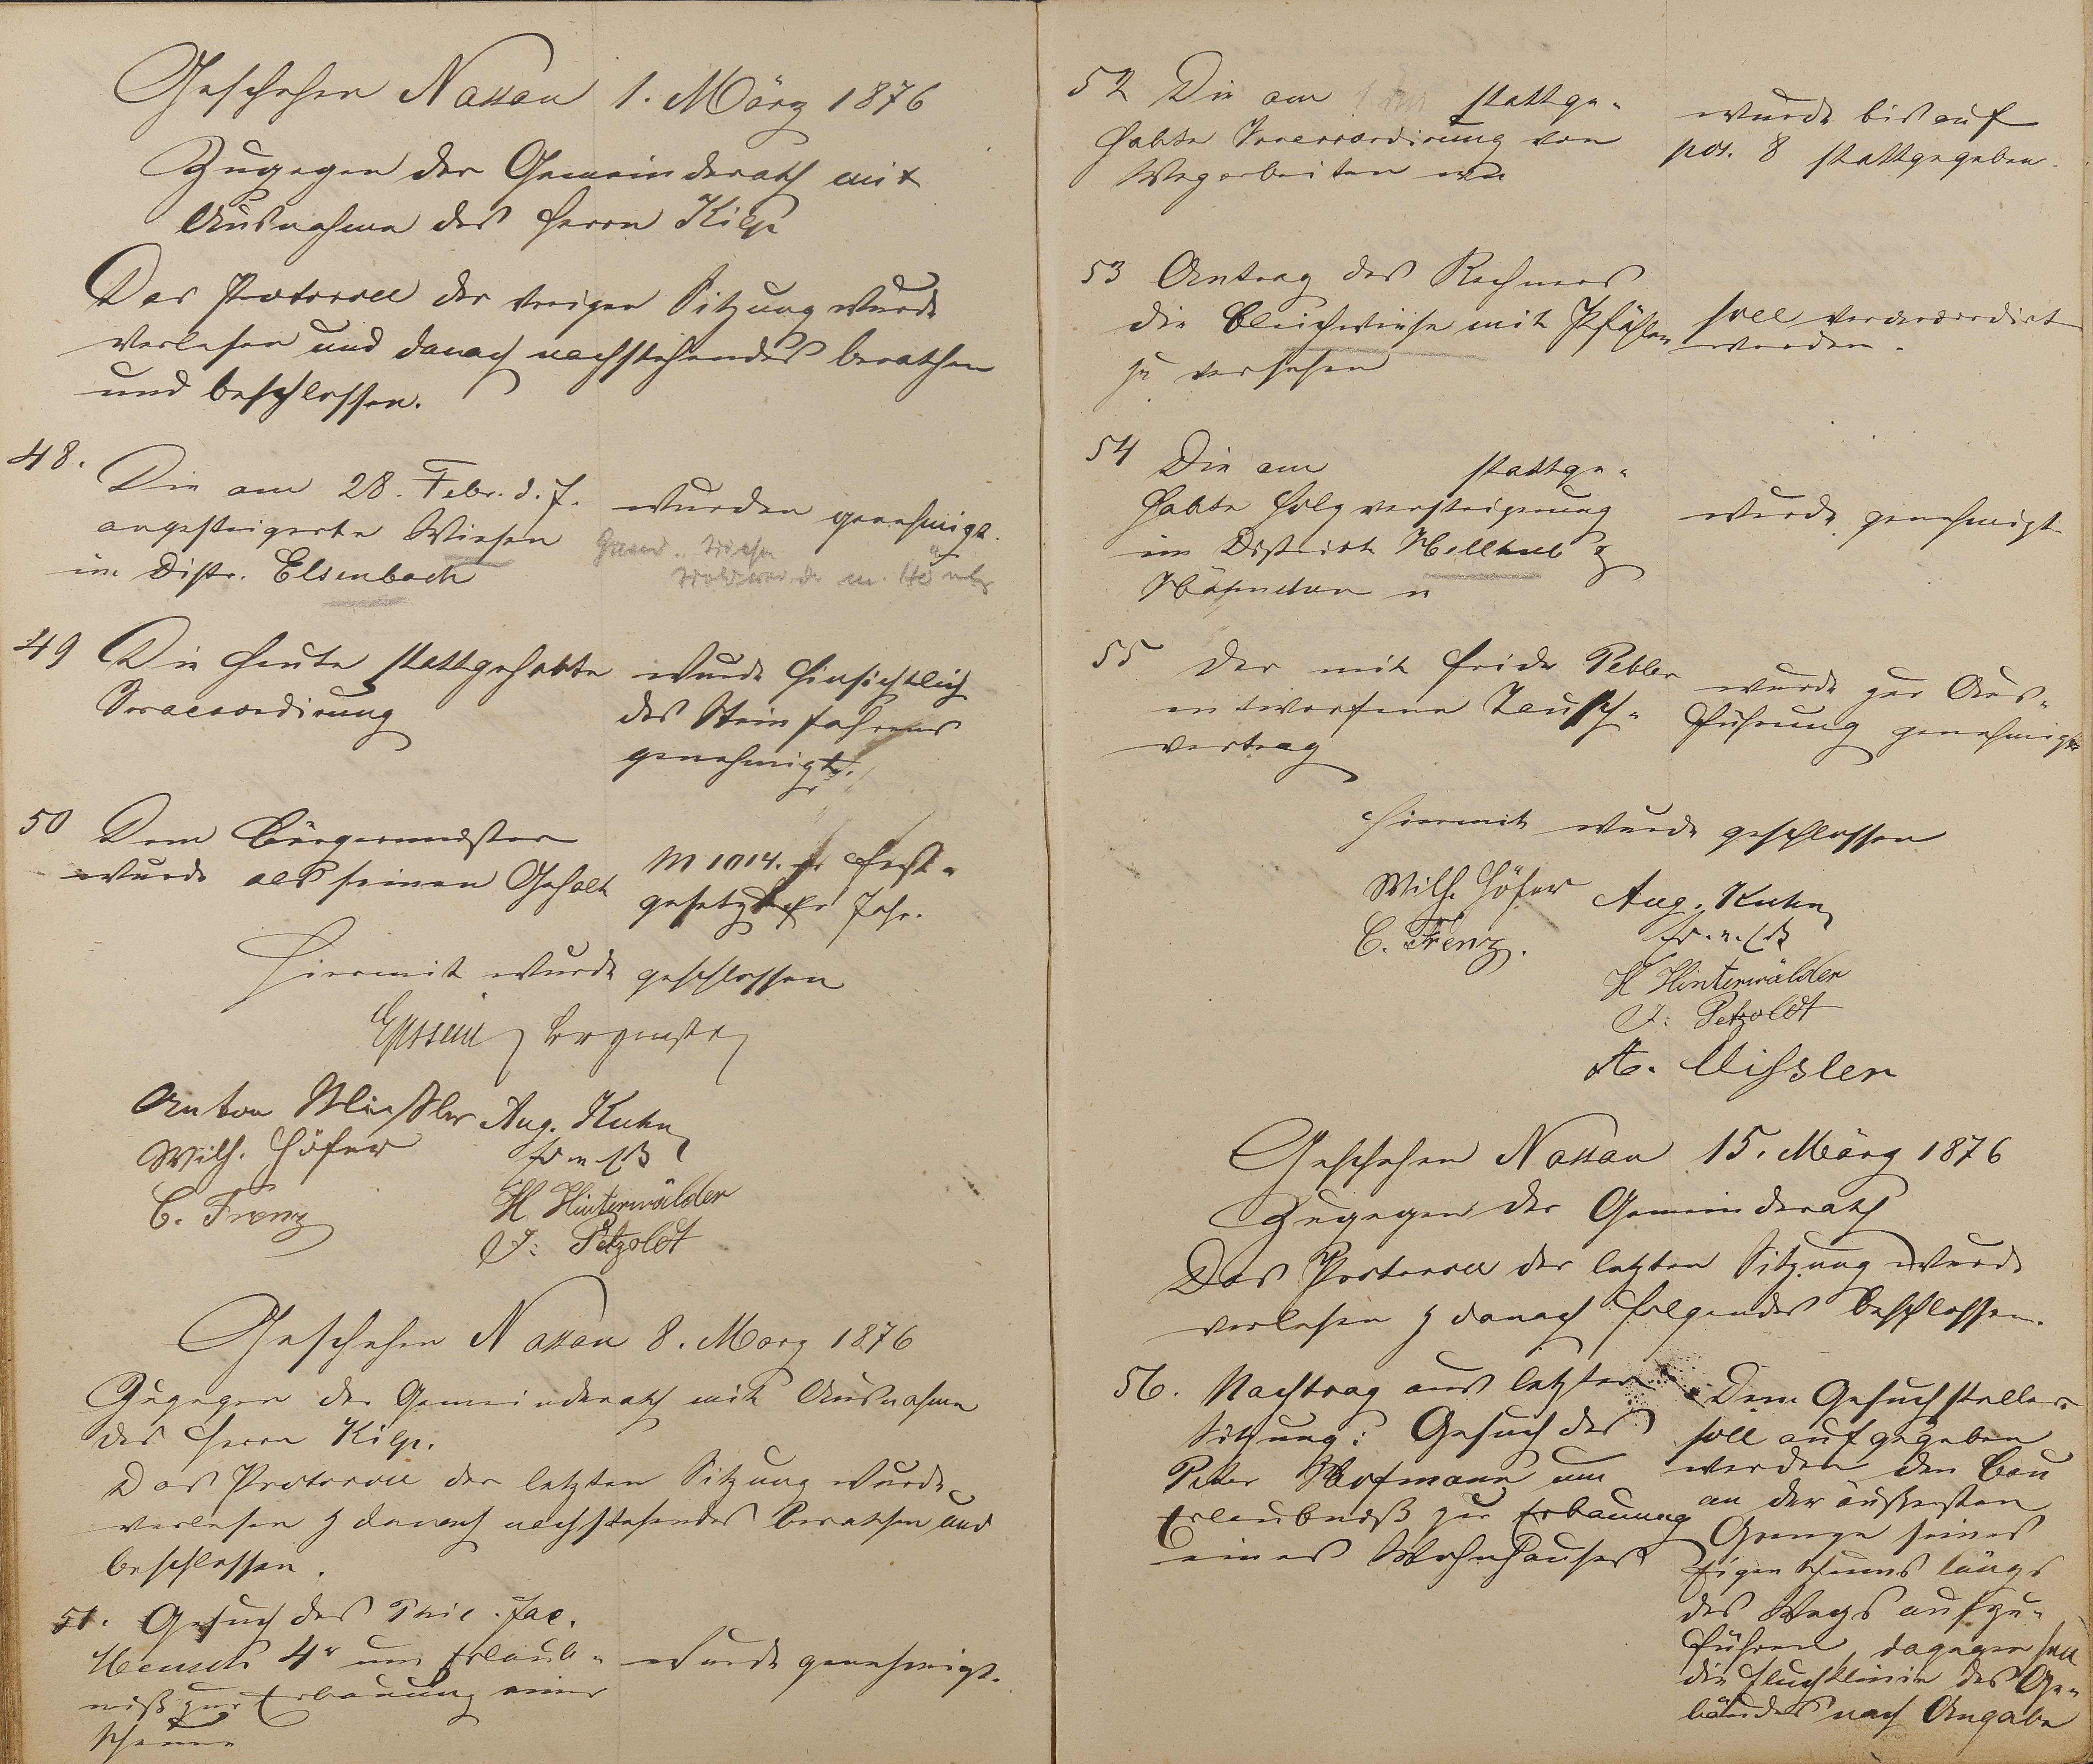 Geschehen Nassau 1. März 1876
Zugegen der Gemeinderath mit
Ausnahme des Herrn Kilp
Das Protocoll der vorigen Sitzung wurde
verlesen und danach nachstehendes berathen
und beschlossen.
48.
Die am 28. Febr. d. J.
angesteigerte Wiesen
im Distr. Elsenbach
wurden genehmigt.
49 Die heute stattgehabte
Veraccordirung
wurde hinsichtlich
des Steinfahrens
genehmigt.
50 Dem Bürgermeister
wurde als seinen Gehalt
M 1014. fest-
gesetzt Jahr.
Hiermit wurde geschlossen
Bürgermstr
Anton Mißler
Wilh. Höfer
C. Frenz
Aug. Kuhn
H Hinterwälder
J. Petzoldt
Geschehen Nassau 8. März 1876
Zugegen der Gemeinderath mit Ausnahme
des Herrn Kilp.
Das Protocoll der letzten Sitzung wurde
verlesen & danach nachstehendes berathen und
beschlossen.
51. Gesuch des Phil. Jac.
4r um Erlaub-
niß zur Erbauung einer
Scheune
wurde genehmigt.
52 Die am stattge-
habte Veraccordirung von
Wegarbeiten
wurde bis auf
pos. 8 stattgegeben.
53 Antrag des Rechners
die Bleichwiese mit Pfählen
zu versehen
soll veraccordirt
werden.
54 Die am stattge-
habte Holzversteigerung
im District &
wurde genehmigt
55 Der mit
entworfene Tausch-
vertrag
wurde zur Aus-
führung genehmigt
Hiermit wurde geschlossen
Wilh. Höfer
C. Frenz.
Aug. Kuhn
H Hinterwälder
J. Petzoldt
A. Mißler
Geschehen Nassau 15. März 1876
Zugegen der Gemeinderath
Das Protocoll der letzten Sitzung wurde
verlesen & danach folgendes beschlossen.
56. Nachtrag aus letzter
Sitzung: Gesuch des
Peter Hofmann um
Erlaubniß zur Erbauung
eines Wohnhauses
Dem Gesuchsteller
soll aufgegeben
werden den Bau
an der äußersten
Grenze seines
Eigenthums längs
des Wegs aufzu-
führen, dagegen soll
die Fluchtlinie des Ge-
bäudes nach Angabe